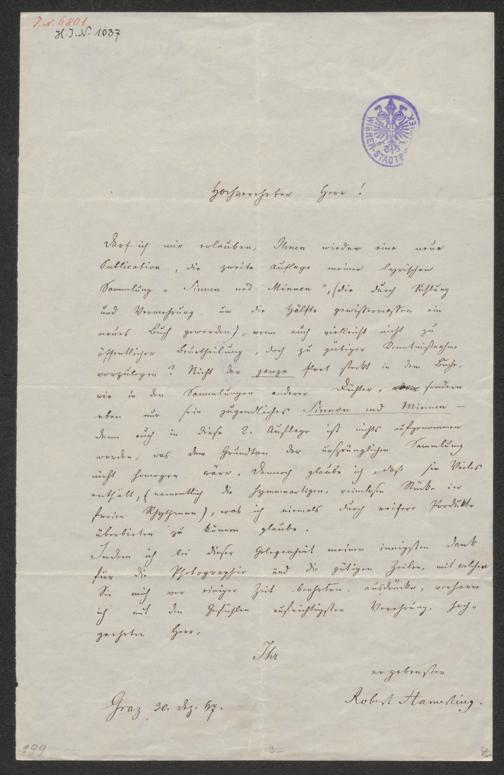 J. N. 6801
H. J. N. 1037
WIENER-STADTBIBLIOTHEK
Hochverehrter Herr!
Darf ich mir erlauben, Ihnen wieder eine neue
Publication, die zweite Auflage meiner lyrischen
Sammlung „Sinnen und Minnen“, (die durch Sichtung
und Vermehrung um die Hälfte gewissermassen ein
neues Buch geworden), wenn auch vielleicht nicht zu
öffentlicher Beurtheilung, doch zu gütiger Kenntnißnahme
vorzulegen? Nicht der ganze Poet steckt in dem Buche,
wie in den Sammlungen anderer Dichter, sondern
eben nur sein jugendliches Sinnen und Minnen –
denn auch in diese 2. Auflage ist nichts aufgenommen
worden, was dem Grundton der ursprünglichen Sammlung
nicht homogen wäre. Dennoch glaube ich, daß sie Vieles
enthält, (namentlich die hymnenartigen, reimlosen Stücke in
freien Rhythmen), was ich niemals durch reifere Produkte
überbieten zu können glaube.
Indem ich bei dieser Gelegenheit meinen innigsten Dank
für die Photographie und die gütigen Zeilen, mit welchen
Sie mich vor einiger Zeit beehrten, ausdrücke, verharre
ich mit den Gefühlen aufrichtigster Verehrung, hoch-
geehrter Herr,
Ihr
ergebenster
Robert Hamerling.
Graz 30. Dez. 67.
199